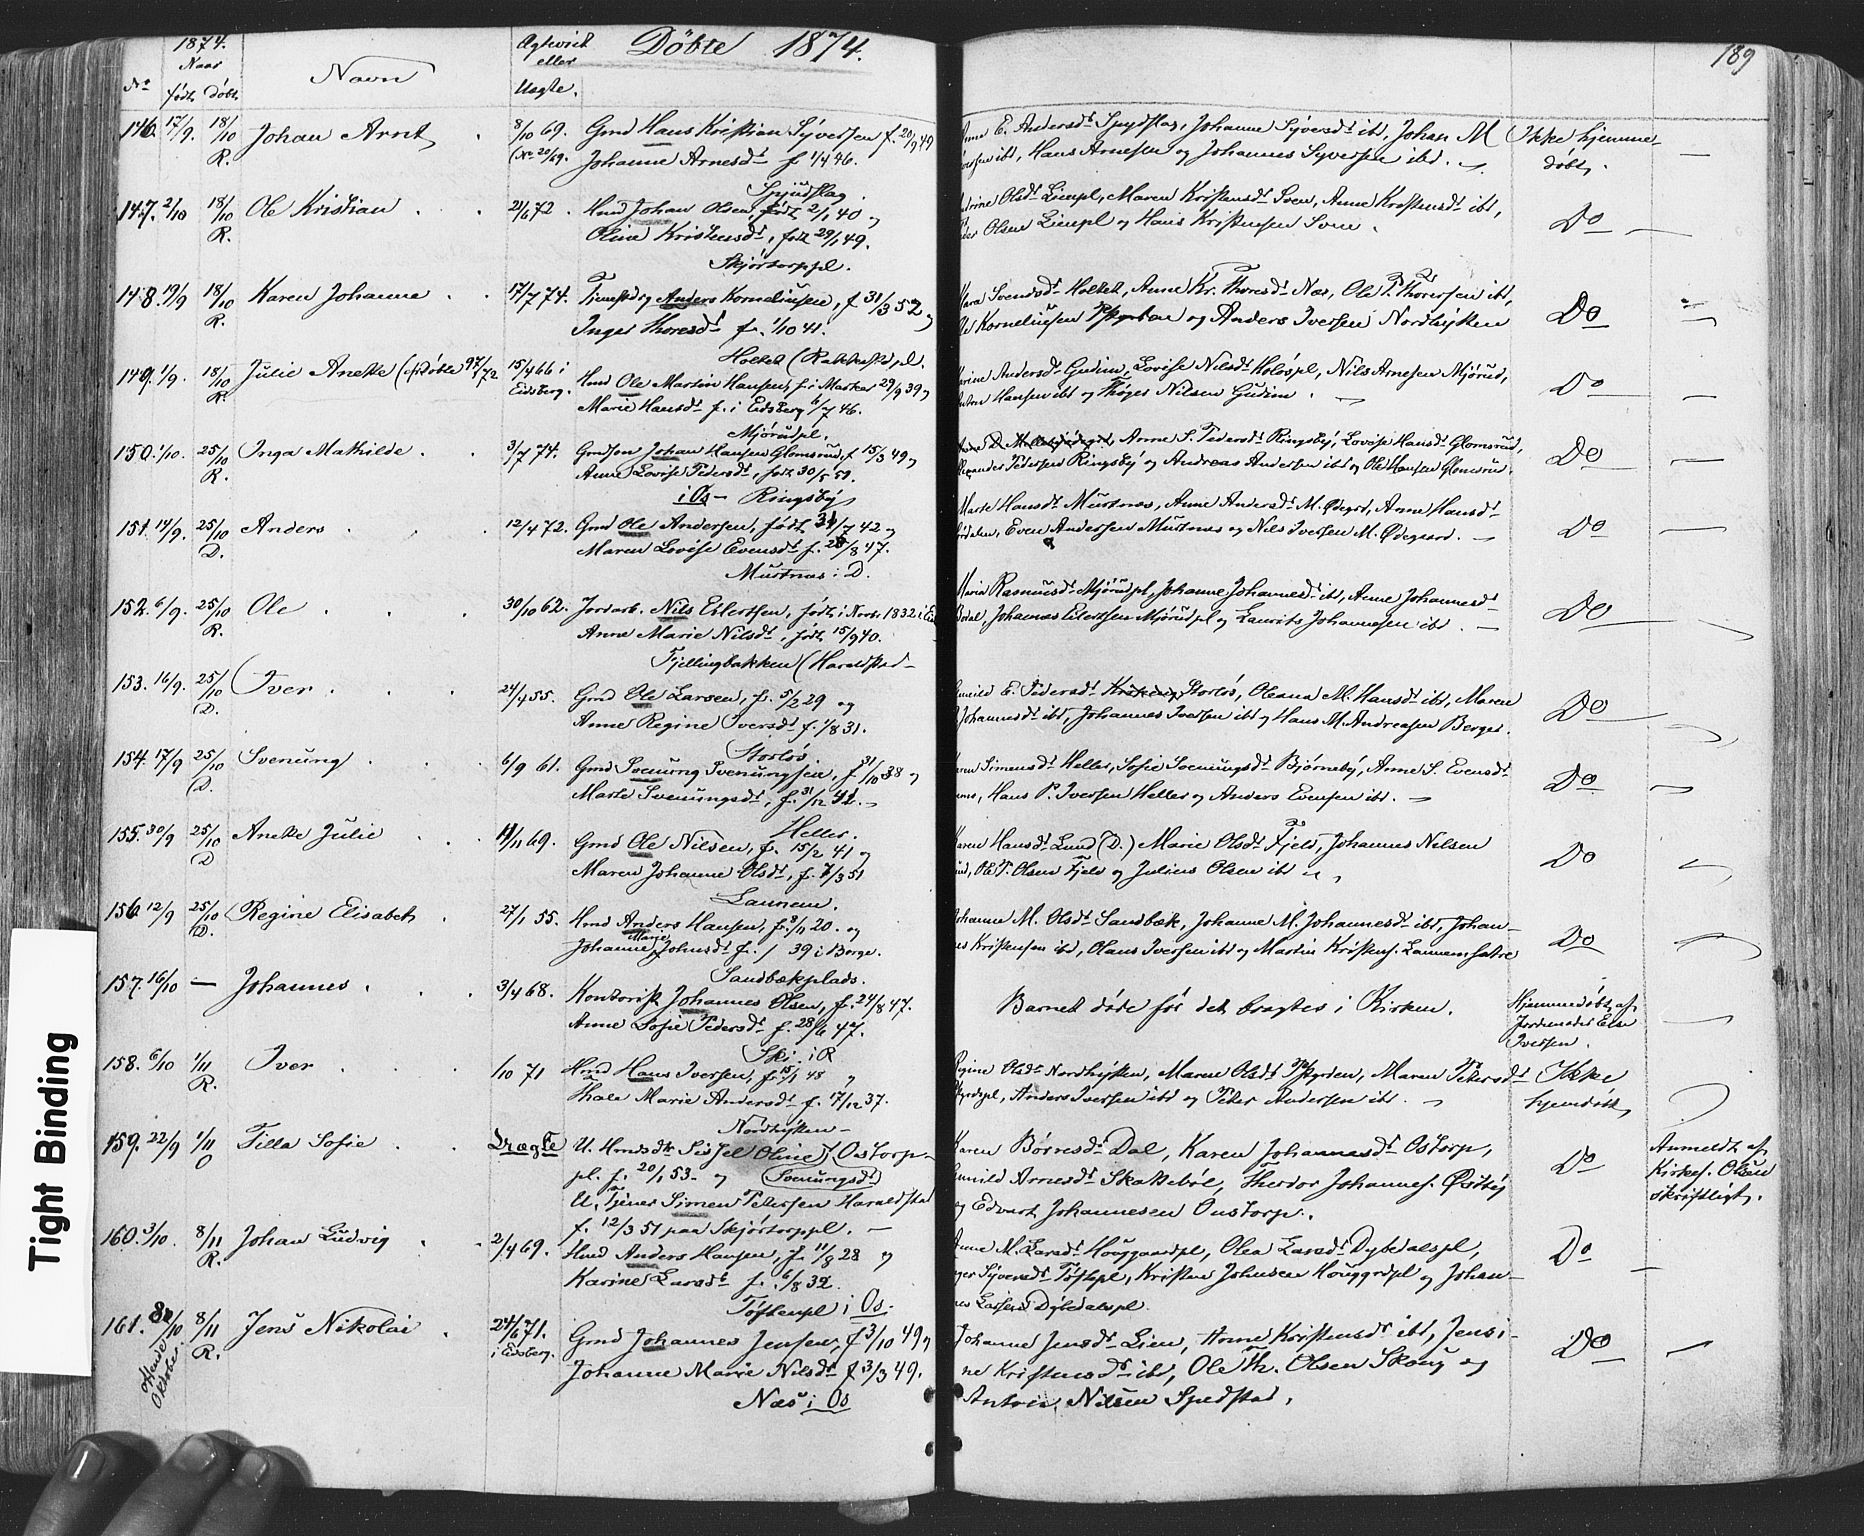 1874.
Døbte 1874.
189
No
Naar
født døbt
Navn
Ægtevied
eller
Uægte.
146. 17/9. 18/10 R. Johan Arnt 8/10 69. Gmd Hans Kristian Syversen f. 20/9 49
Johanne Arnesdt f 1/4 46.
E. Andersdt Spydflag, Johanne Syversdt ibd, Johan M
ibd, Hans Arnesen og Johannes Syversen ibd.
Ikke hjemme-
døbt.
147. 2/10 18/10 R. Ole Kristian 21/6 72. Hmd Johan Olsen, født 2/1 40 og
Oline Kristensdt, født 29/1 49.
Skjørtorppl.
Olsdt Limpl, Maren Kristensdt Soen, Anne Kristensdt ibt,
Olsen Limpl og Hans Kristensen Soen.
Do
148. 19/9 18/10 R. Karen Johanne 17/7 74. Anders Korneliusen, f 31/3 52 og
Inger Thoresdt f. 1/10 41.
Svendsdt Holtet, Anne Kr. Thoresdt Næs, Ole T. Thoresen ibt,
Korneliusen og Anders Iversen Nordhyken
Do
149. 1/9. 18/10 R. Julie Anette 15/4 66 i
Eidsberg.
Hmd Ole Martin Hansen, f. i Marker 29/9 39 og
Marie Hansdt f. i Eidsberg 6/7 46.
Mjørudpl.
Andersdt Gudim, Lovise Nilsdt Holøspl, Nils Arnesen Mjørud,
Hansen ibt og Thøger Nilsen Gudim.
Do
150. 1/10. 25/10 R. Inga Mathilde 3/7 74. Johan Hansen Glomsrud, f 15/3 49 og
Anne Lovise Pedersdt, født 30/5 51.
i Os - Ringsby
Anne S. Pedersdt Ringsby, Lovise Hansdt Glomsrud,
Pedersen Ringsby og Andreas Andersen ibt og Ole Hansen Glomsrud.
Do
151. 14/9. 25/10 D. Anders 12/4 72. Gmd Ole Andersen, født 31/7 42 og
Maren Lovise Evensdt f. 28/8 47.
Murtnæs i D.
Marte Hansdt Murtnæs, Anne Andersdt M. Ødegrd, Anne Hansdt
Even Andersen Murtnæs og Nils Iversen M. Ødegaard.
Do
152. 6/9. 25/10 R. Ole 30/10 62. Jordarb. Nils Eilertsen, født i Nord. 1832 i
Anne Marie Nilsdt, født 15/9 40.
Fjellingbakken (Haraldstad-
Rasmusdt Mjørudpl, Johanne Johannesdt ibt, Anne Johannesdt
Johannes Eilertsen Mjørudpl og Laurits Johannesen ibd.
Do
153. 16/9. 25/10 D. Iver 24/4 55. Gmd Ole Larsen, f. 5/2 29 og
Anne Regine Iversdt f. 1/8 31.
Storløs
E. Pedersdt Storløs, Oleana M. Hansdt ibt, Maren
Johannesdt ibt, Johannes Iversen ibt og Hans M. Andreasen Berger.
Do
154. 17/9 25/10 D. Svenung 6/9 61. Gmd Svenung Svenungsen, f 31/10 38 og
Marte Svenungsdt, f. 31/12 42.
Heller.
Simensdt Heller, Sofie Svenungsdt Bjørneby, Anne S. Evensdt
Hans P. Iversen Heller og Anders Evensen ibt.
Do
155. 30/9 25/10 D Anette Julie 11/11 69. Gmd Ole Nilsen, f. 15/2 41 og
Maren Johanne Olsdt, f. 7/3 51
Launem.
Hansdt Lund (D.) Marie Olsdt Fjeld, Johannes Nilsen
Olsen Fjeld og Julius Olsen ibt
Do
156 12/9 25/10 D. Regine Elisabeth 27/1 55. Hmd Anders Hansen, f. 8/11 20. og
Johanne Marie Johnsdt f. / 39 i Borge.
Sandbækplads.
M. Olsdt Sandbæk, Johanne M. Johannesdt ibt, Johan-
Kristensen ibd, Olaus Iversen ibt og Martin Kristens. Launemsætre
Do
157. 16/10 — Johannes 3/4 68. Kontorist Johannes Olsen, f. 24/8 47.
Anne Sofie Pedersdt f. 28/6 47.
Ski i R
Barnet døde før det bragtes i Kirken.
Hjemmedøbt af
Jordemoder Else
Iversen.
158. 6/10 1/11 R. Iver /10 71 Hmd Hans Iversen, f. 15/1 48 og
Thale Marie Andersdt f. 17/12 37.
Nordhyken
Olsdt Nordhyken, Maren Olsdt, Maren Petersdt
Anders Iversen ibd og Peter Andersen ibt.
Ikke
hjemdøbt
159. 22/9 1/11 O Tilla Sofie Uægte U. Sissel Oline Ostorp-
pl. f. 20/1 53 - og Svenungsdt
U. Tjener Simen Pettersen Haraldstad
f. 12/3 51 paa Skjørtorppl.
Karen Børresdt Dal, Karen Johannesdt Ostorp,
Arnesdt Skattebøl, Theodor Johannes. Østby
og Edvart Johannesen Oustorp.
Do
Anmeldt af
Kirkes. Olsen
skriftligt.
160. 3/10. 8/11 R. Johan Ludvig 2/4 69. Hmd Anders Hansen, f. 11/8 28 og
Karine Larsdt f. 6/8 32.
Toftenpl i Os.
Anne M. Larsdt Houggaardpl, Olea Larsdt Dybedalspl,
Syversdt Toftepl, Kristen Johnsen Houggrdpl og Johan-
Larsen Dybedalspl.
Do
161. 8/10 8/11 R. Jens Nikolai 24/6 71.
i Eidsberg.
Gmd Johannes Jensen, f 3/10 49 og
Johanne Marie Nilsdt f. 3/3 49.
Næs i Os
Oktober
Johanne Jensdt Lien, Anne Kristensdt ibt, Jensi-
ne Kristensdt ibt, Ole Th. Olsen Skoug og
Anton Nilsen Spedstad.
Do
Tight Binding